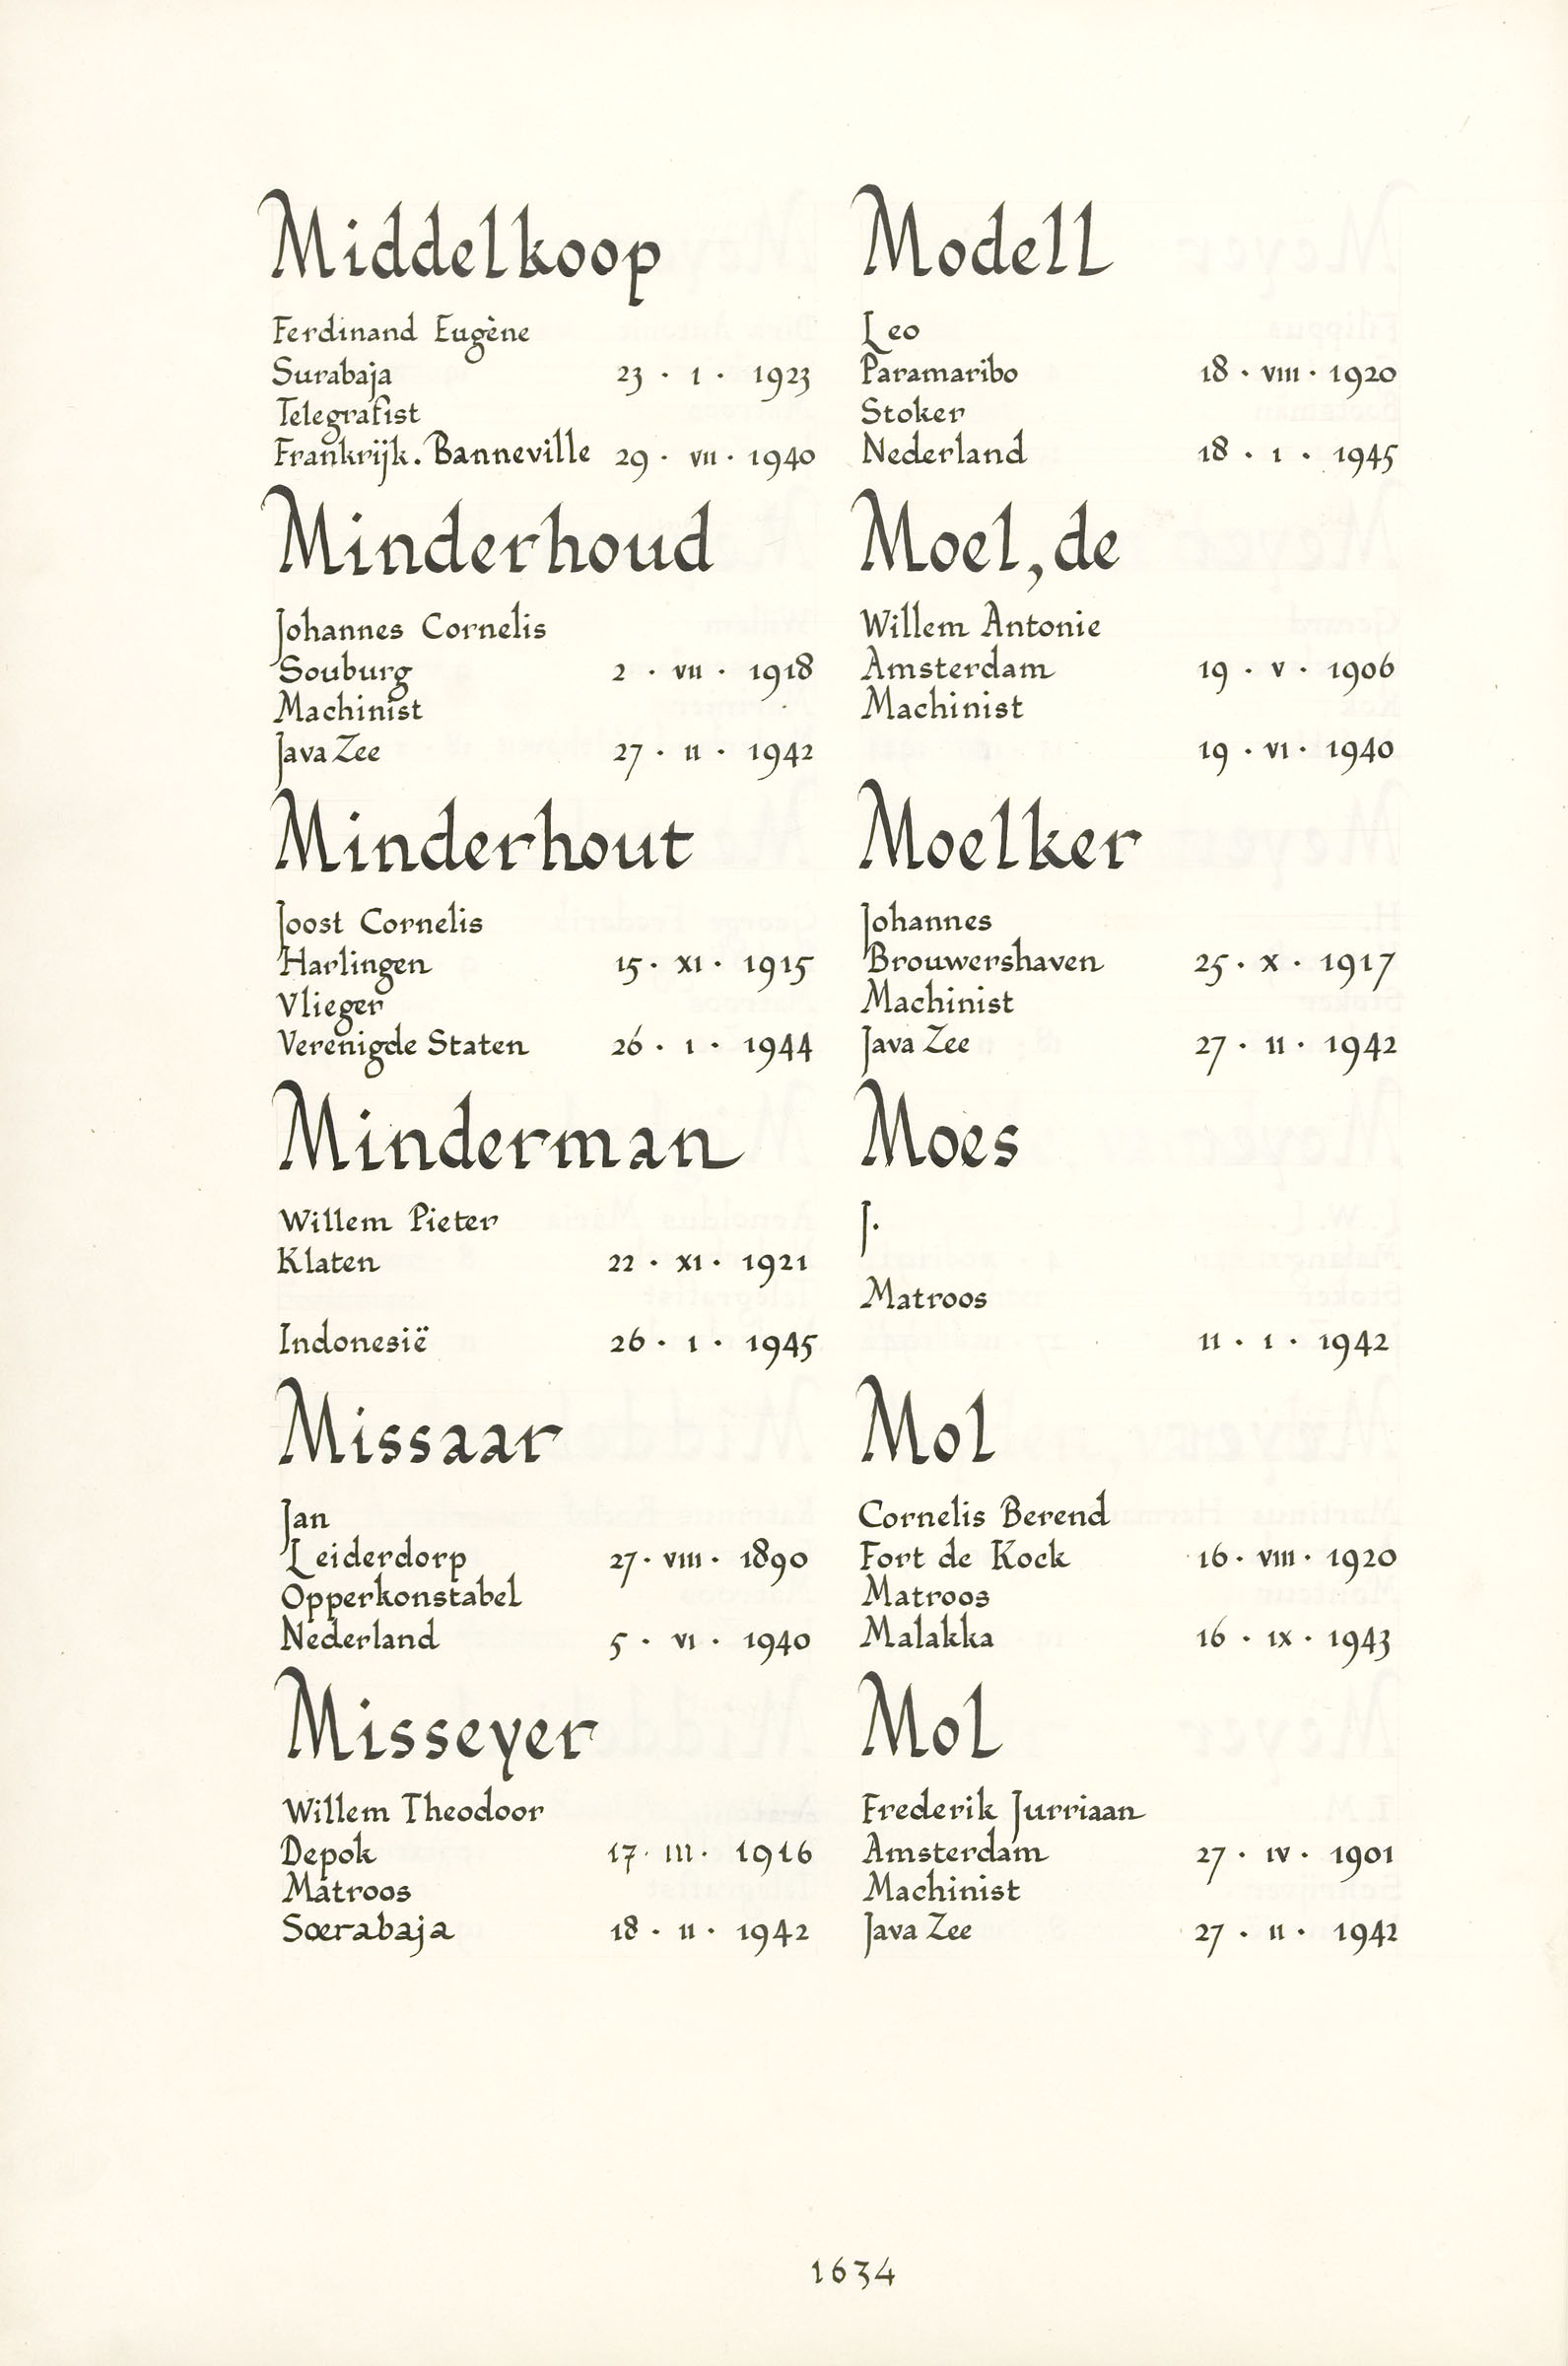 Middelkoop
Ferdinand Eugène
Surabaja 23 · I · 1923
Telegrafist
Frankrijk. Banneville 29 · VII · 1940
Minderhoud
Johannes Cornelis
Souburg 2 · VII · 1918
Machinist
Java Zee 27 · II · 1942
Minderhout
Joost Cornelis
Harlingen 15 · XI · 1915
Vlieger
Verenigde Staten 26 · I · 1944
Minderman
Willem Pieter
Klaten 22 · XI · 1921
Indonesië 26 · I · 1945
Missaar
Jan
Leiderdorp 27 · VIII · 1890
Opperkonstabel
Nederland 5 · VI · 1940
Misseyer
Willem Theodoor
Depok 17 · III · 1916
Matroos
Soerabaja 18 · II · 1942
Modell
Leo
Paramaribo 18 · VIII · 1920
Stoker
Nederland 18 · I · 1945
Moel, de
Willem Antonie
Amsterdam 19 · V · 1906
Machinist
19 · VI · 1940
Moelker
Johannes
Brouwershaven 25 · X · 1917
Machinist
Java Zee 27 · II · 1942
Moes
J.
Matroos
11 · I · 1942
Mol
Cornelis Berend
Fort de Kock 16 · VIII · 1920
Matroos
Malakka 16 · IX · 1943
Mol
Frederik Jurriaan
Amsterdam 27 · IV · 1901
Machinist
Java Zee 27 · II · 1942
1634